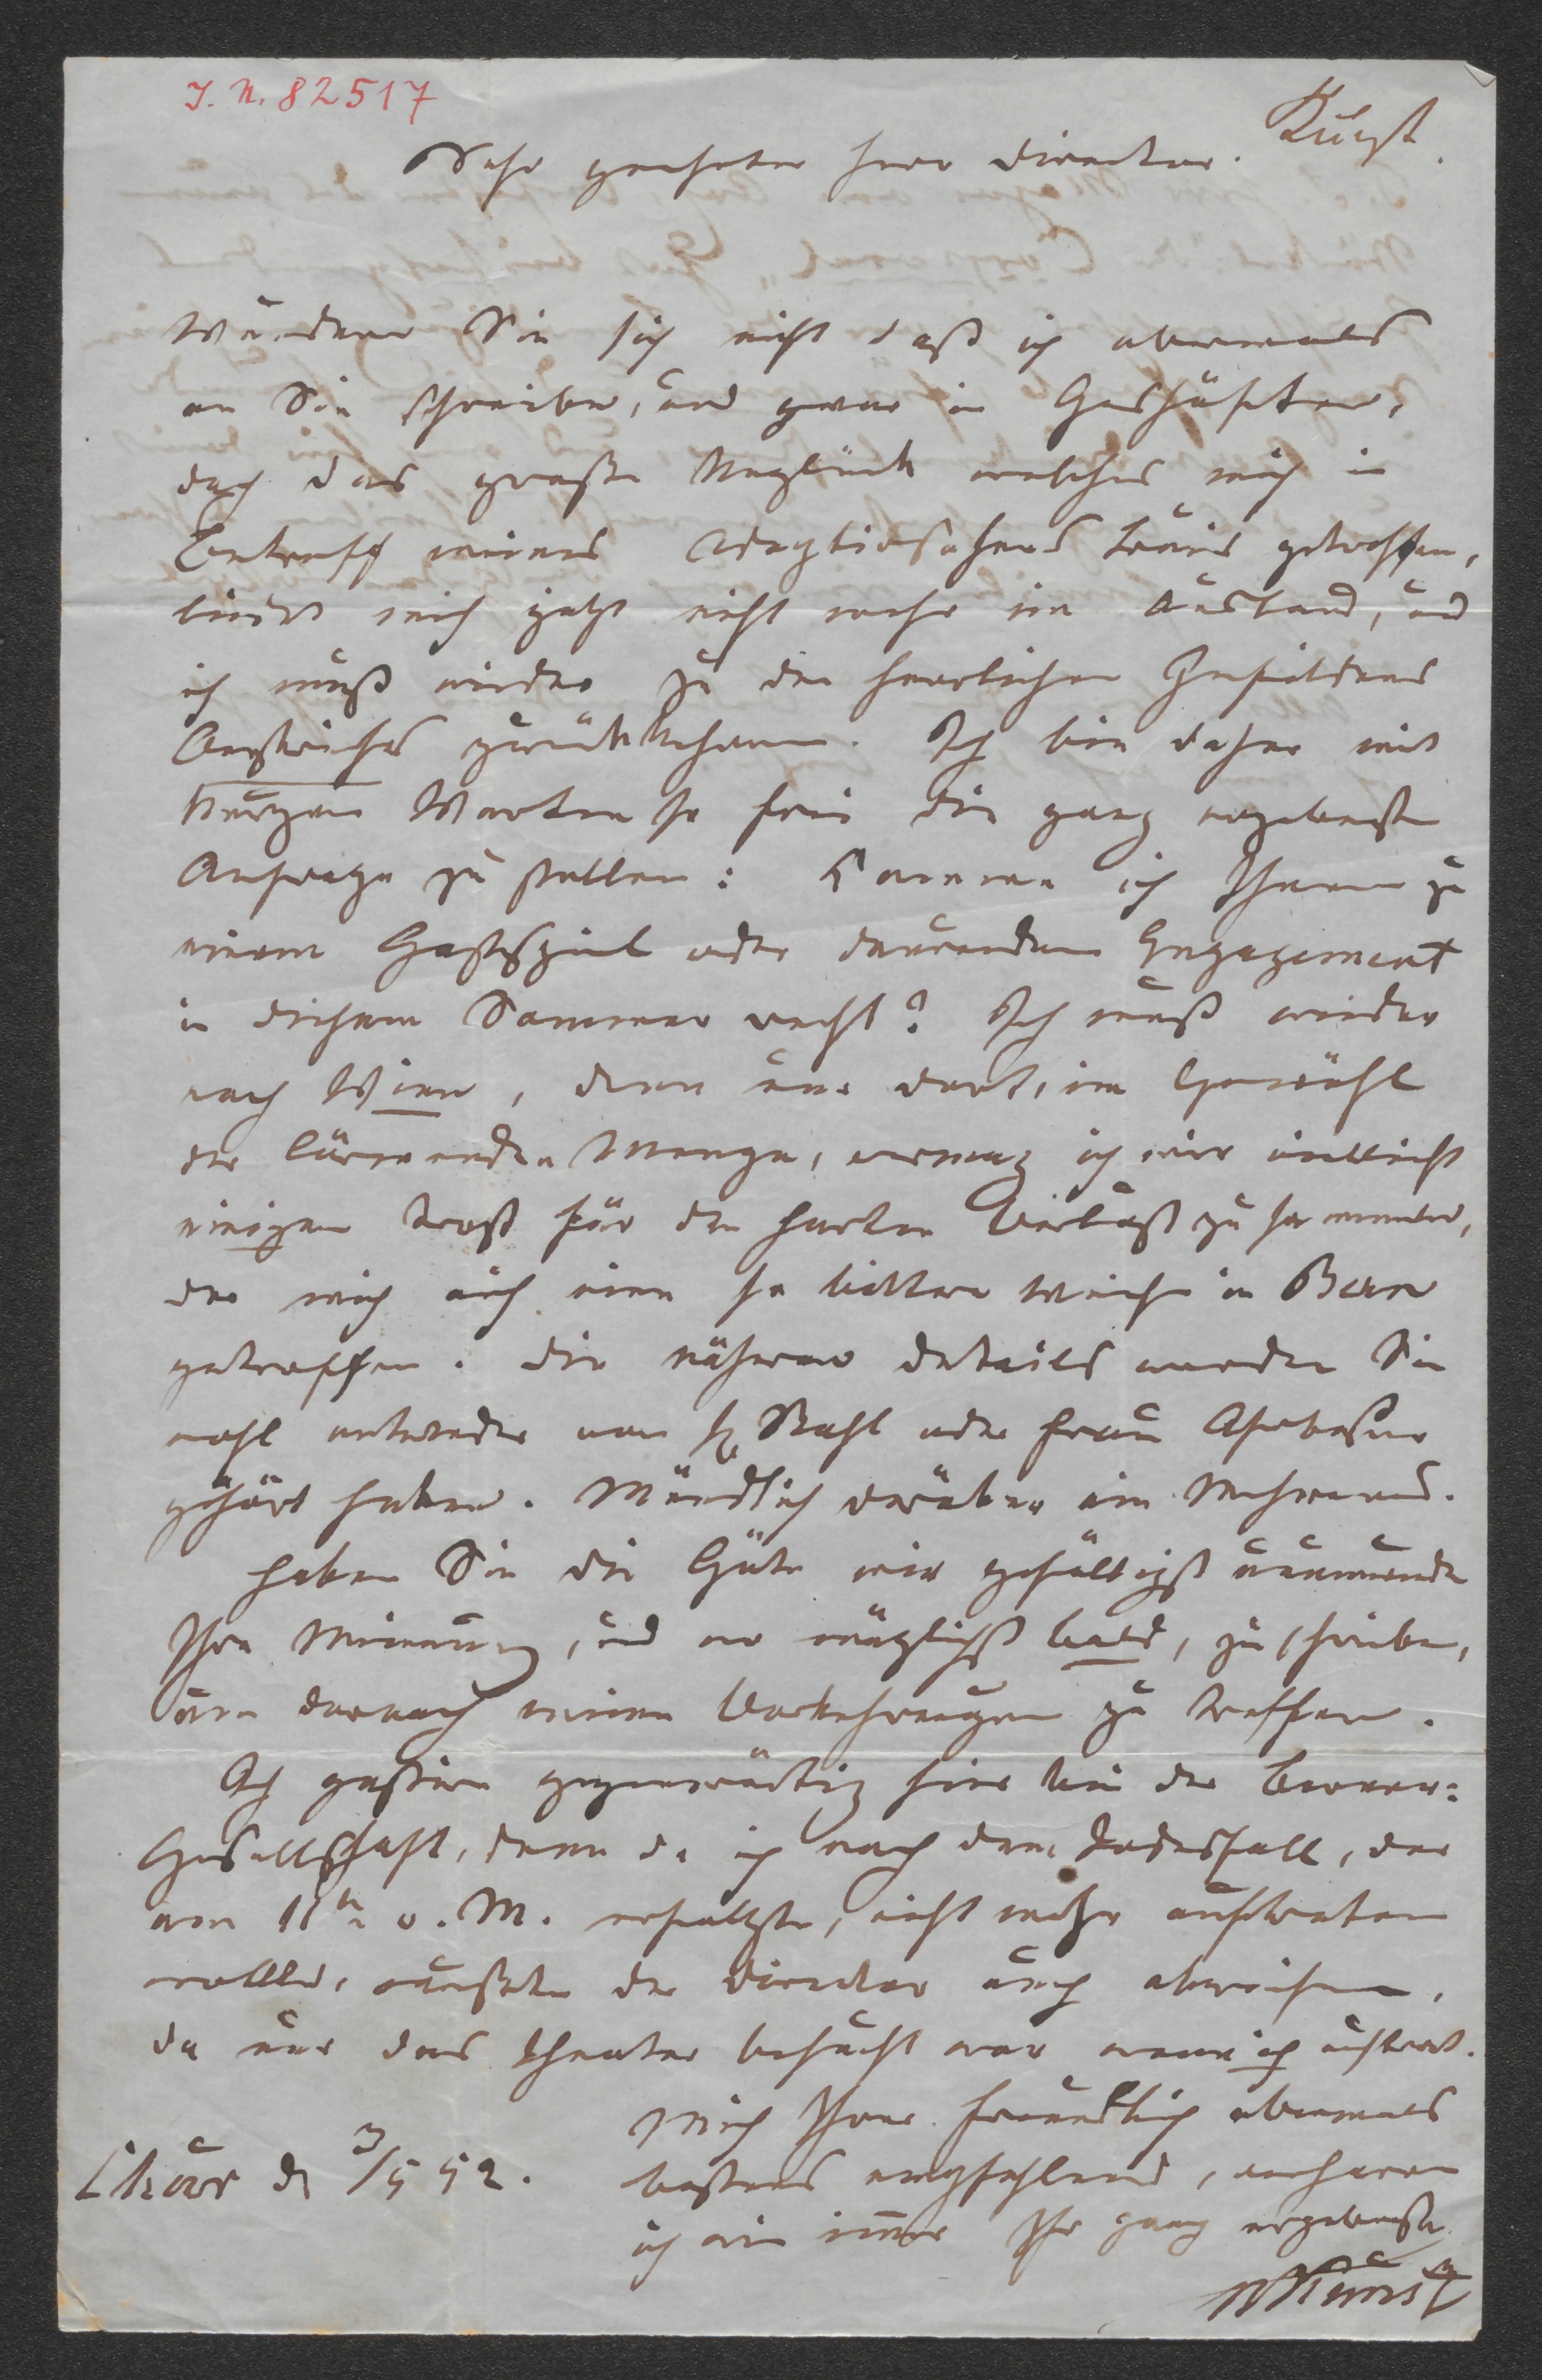 J. N. 82517
Kunst.
Sehr geehrter Herr Director.
Wundern Sie sich nicht daß ich abermals
an Sie schreibe, und zwar in Geschäften,
doch das große Unglück welches mich in
Betreff meines Adoptivsohnes Louis getroffen,
leidet mich jetzt nicht mehr im Ausland, und
ich muß wieder zu den herrlichen Gefildens
Oestreichs zurückkehren. Ich bin daher mit
kurzen Worten so frei die ganz ergebenste
Anfrage zu stellen: Komme ich Ihnen zu
einem Gastspiel oder dauerndem Engagement
in diesem Sommer recht? Ich muß wieder
nach Wien, denn nur dort, im Gewühl
der lärmenden Menge, vermag ich mir vielleicht
einigen Trost für den harten Verlust zu sammeln,
der mich auf eine so bittere Weise in Bern
getroffen. Die näheren Details werden Sie
wohl entweder von H Stahl oder Frau
gehört haben. Mündlich darüber ein Mehreres.
Haben Sie die Güte mir gefälligst umgehend
Ihre Meinung, und wo möglichst bald, zu schreiben,
um darnach meine Vorkehrungen zu treffen.
Ich gastire gegenwärtig hier bei der Berner-
Gesellschaft, denn da ich nach dem Todesfall, der
am 11ten v. M. erfolgte, nicht mehr auftreten
wollte, mußte der Director auch abreisen,
da nur das Theater besucht war wenn ich auftrat.
Mich Ihnen freundlich abermals
bestens empfehlend, verharre
ich wie immer Ihr ganz ergebenster
Chur d 3/5 52.
WKunst